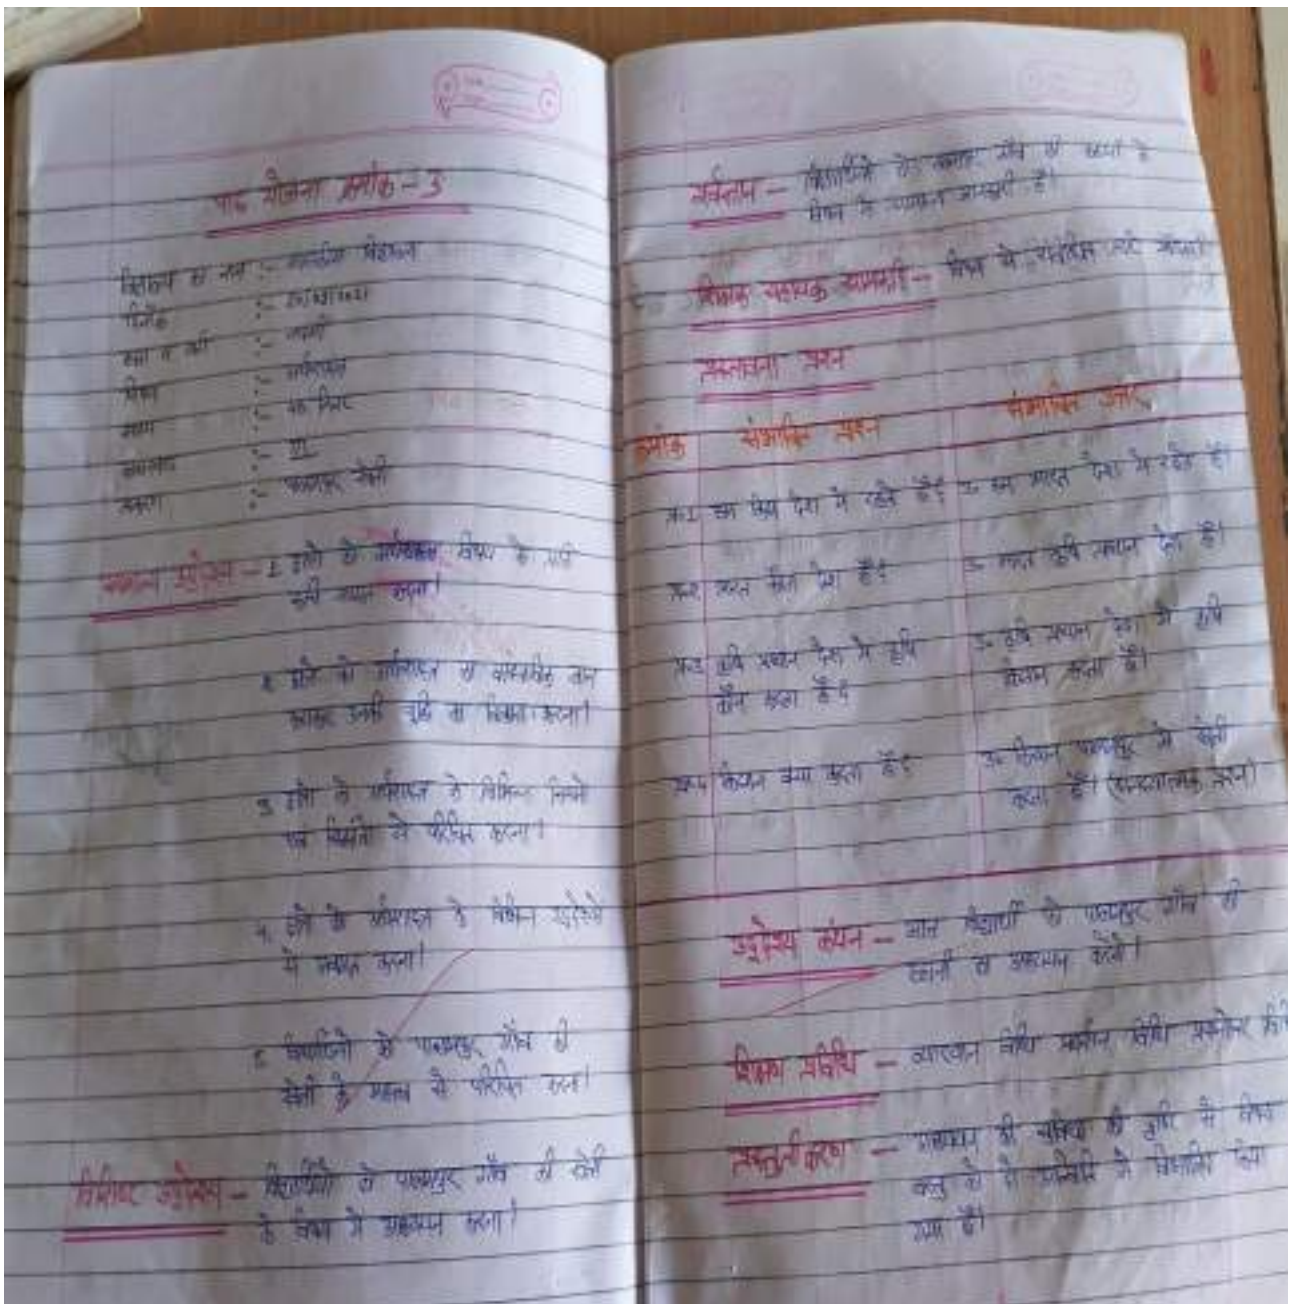 पाठ योजना क्रमांक - 3
विद्यालय का नाम :-
दिनांक :-
कक्षा व वर्ग :- नवमी
विषय :- अर्थशास्त्र
समय :- मिनट
:-
प्रकरण :- पालमपुर खेती
सामान्य उद्देश्य - 1. छात्रों को अर्थशास्त्र विषय के प्रति
रूची उत्पन्न करना।
2. छात्रों को अर्थशास्त्र का ज्ञान
कराकर उनकी बुद्धि का विकास करना।
3. छात्रों को अर्थशास्त्र के विभिन्न नियमों
एवं सिद्धांतों से परिचित करना।
4. छात्रों को अर्थशास्त्र के विभिन्न उद्देश्यों
से अवगत करना।
5. विद्यार्थियों को पालमपुर गाँव की
खेती के महत्व से परिचित करना।
विशिष्ट उद्देश्य - विद्यार्थियों को पालमपुर गाँव की खेती
के विषय में अध्ययन करना।
पूर्वज्ञान - विद्यार्थियों को गाँव की के
विषय में सामान्य जानकारी है।
शिक्षक सहायक सामग्री - विषय से संबंधित चार्ट
प्रस्तावना प्रश्न
क्रमांक संभावित प्रश्न संभावित उत्तर
प्र-1 हम किस देश में रहते हैं? उ- हम भारत देश में रहते हैं।
प्र-2 भारत कैसा देश है? उ- भारत कृषि प्रधान देश है।
प्र-3 कृषि प्रधान देश में कृषि उ- कृषि प्रधान देश में कृषि
कौन करता है? किसान करता है।
प्र-4 किसान क्या करता है? उ- किसान पालमपुर में खेती
करता है। (समस्यात्मक प्रश्न)
उद्देश्य कथन - आज विद्यार्थी को पालमपुर गाँव की
कहानी का अध्ययन करेंगे।
शिक्षण प्रविधि - व्याख्यान विधि विधि प्रश्नोत्तर विधि
प्रस्तुतीकरण - की सुविधा की दृष्टि से विषय
वस्तु को में विभाजित किया
गया है।